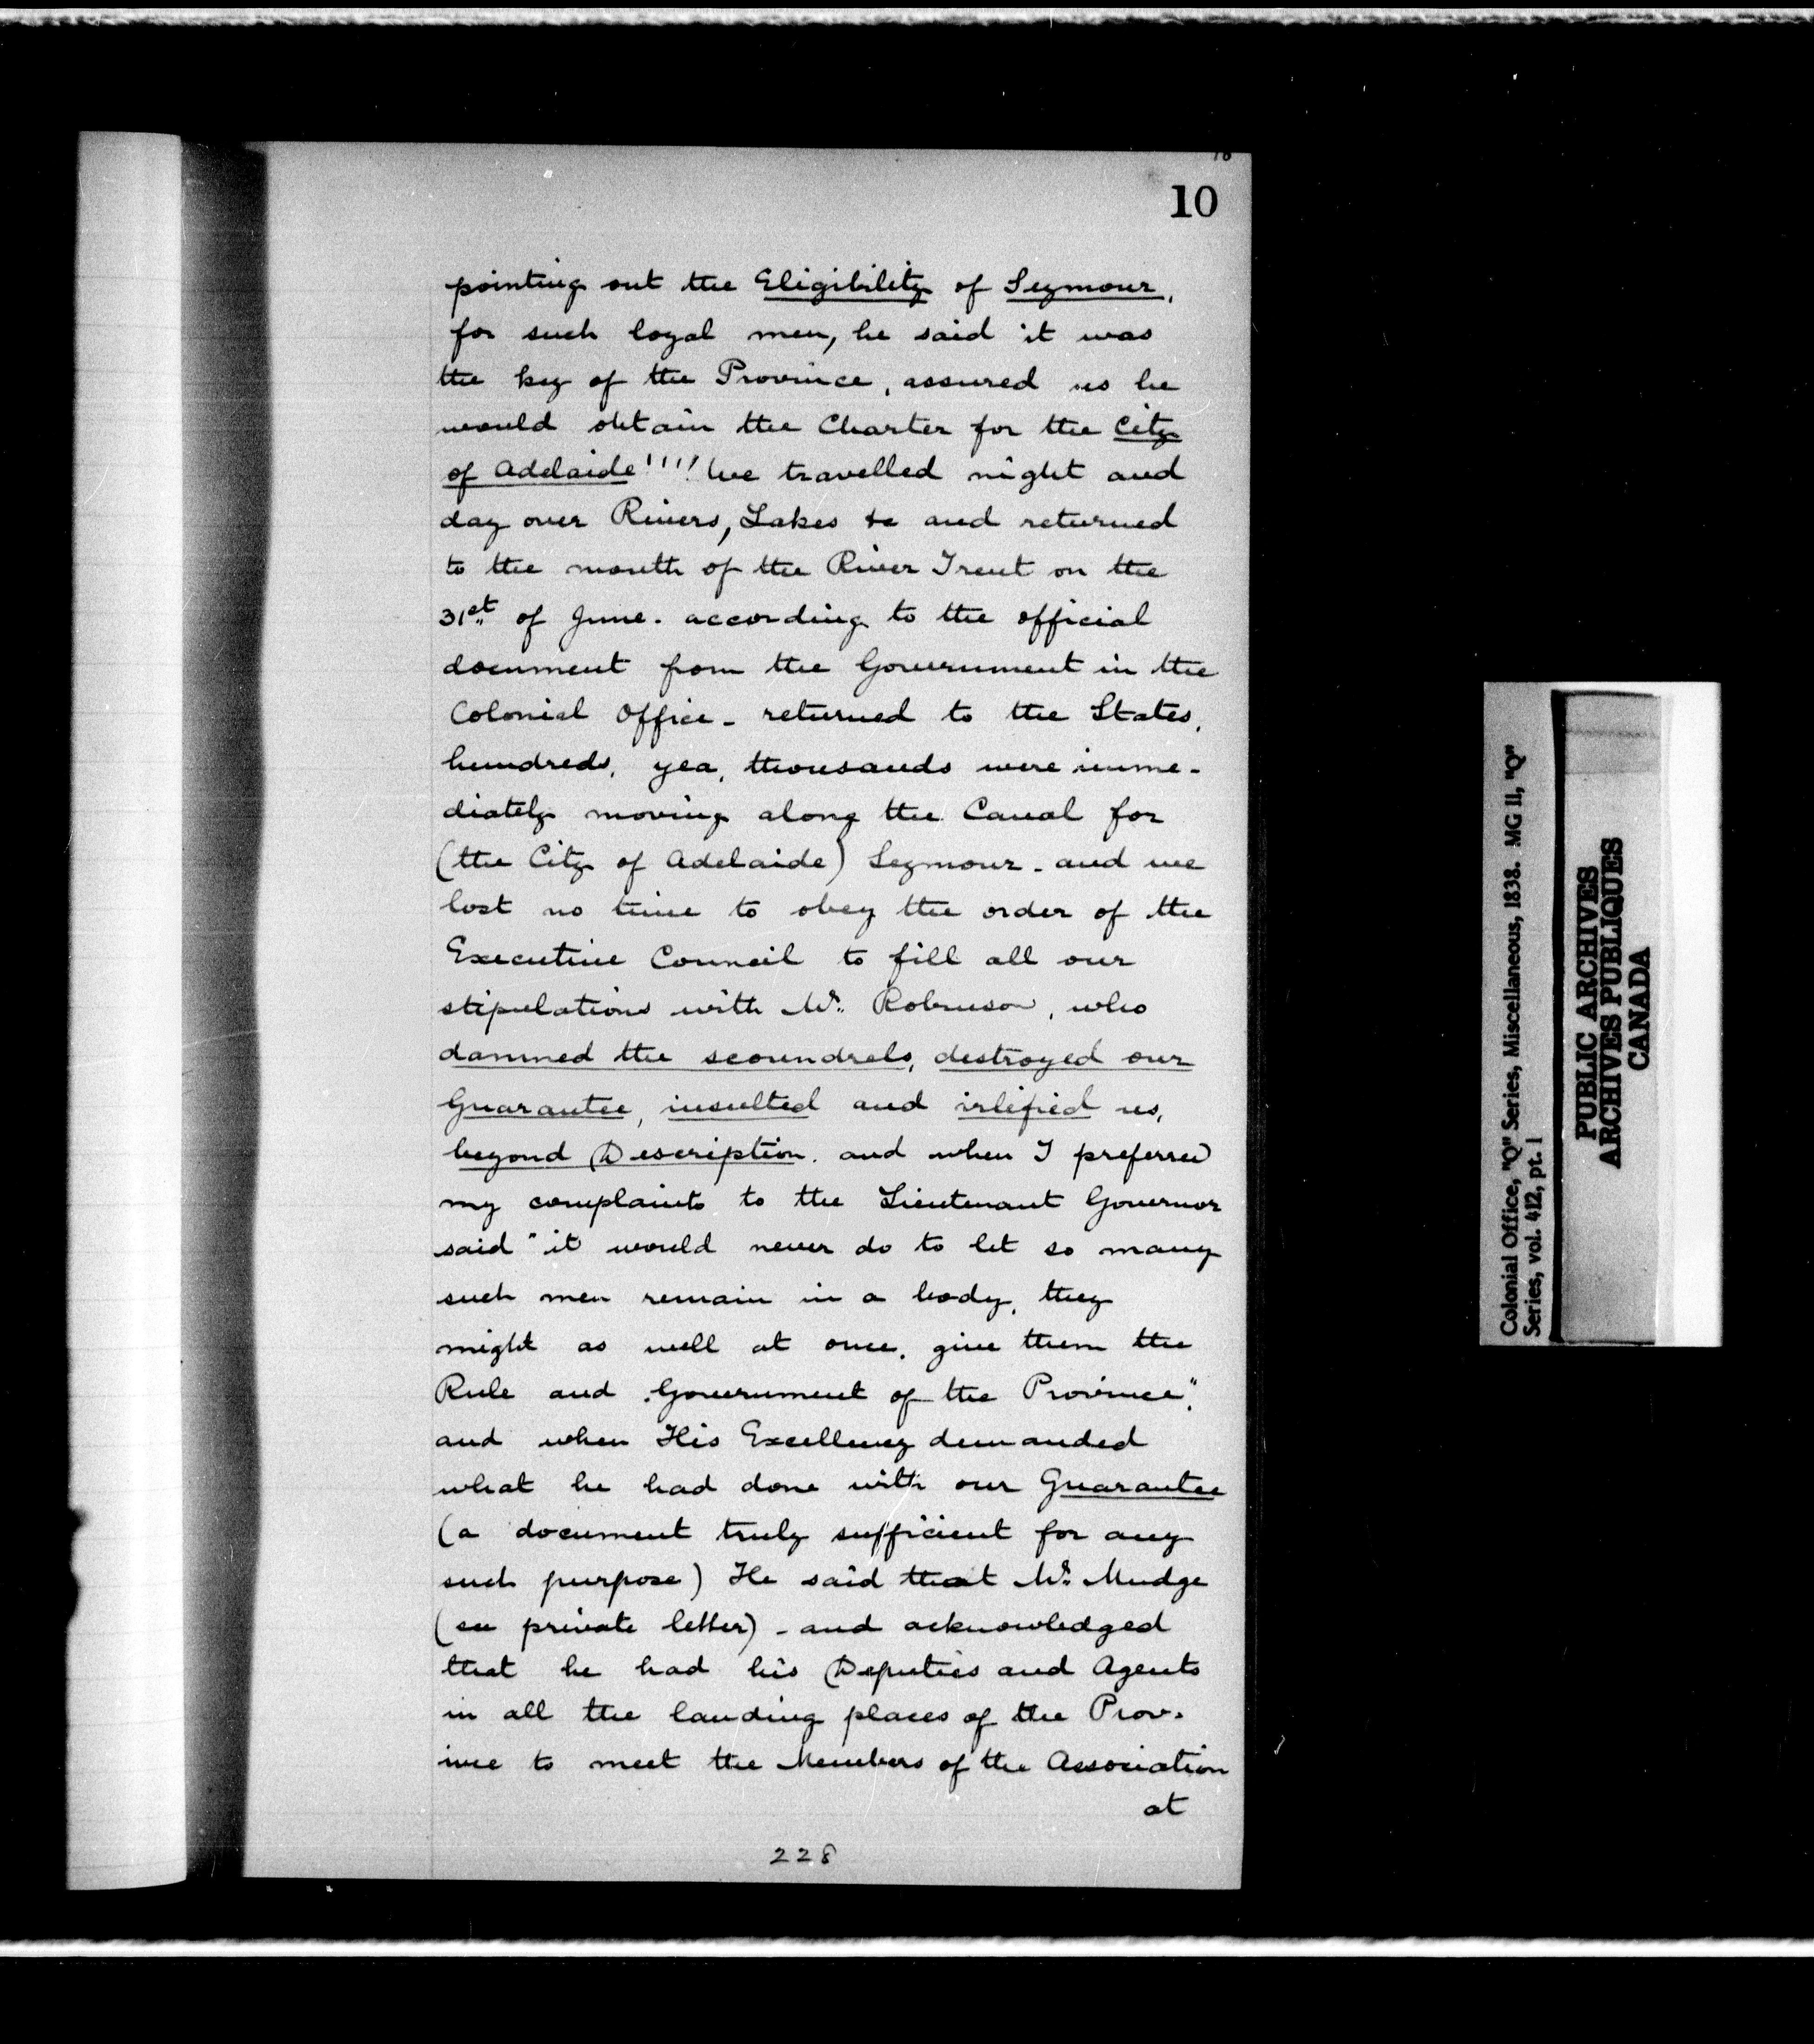 10
pointing out the Eligibility of Seymour,
for such loyal men, he said it was
the key of the Province, assured us he
would obtain the Charter for the City
of Adelaide!!!! We travelled night and
day over Rivers, Lakes &c and returned
to the mouth of the River Trent on the
31st of June. according to the official
document from the Government in the
Colonial Office - returned to the States,
hundreds, yea, thousands were imme-
diately moving along the Canal for
(the City of Adelaide) Seymour - and we
lost no time to obey the order of the
Executive Council to fill all our
stipulations with Mr. Robinson, who
damned the scoundrels, destroyed our
Guarantee, insulted and us,
beyond Description. and when I preferred
my complaints to the Lieutenant Governor
said "it would never do to let so many
such men remain in a body, they
might as well at once, give them the
Rule and Government of the Province",
and when His Excellency demanded
what he had done with our Guarantee
(a document truly sufficient for any
such purpose) He said that Mr. Mudge
(see private letter) - and acknowledged
that he had his Deputies and Agents
in all the landing places of the Prov-
ince to meet the Members of the Association
at
228
Colonial Office, "Q" Series, Miscellaneous, 1838. MG 11, "Q"
Series, vol. 412, pt. 1
PUBLIC ARCHIVES
ARCHIVES PUBLIQUES
CANADA